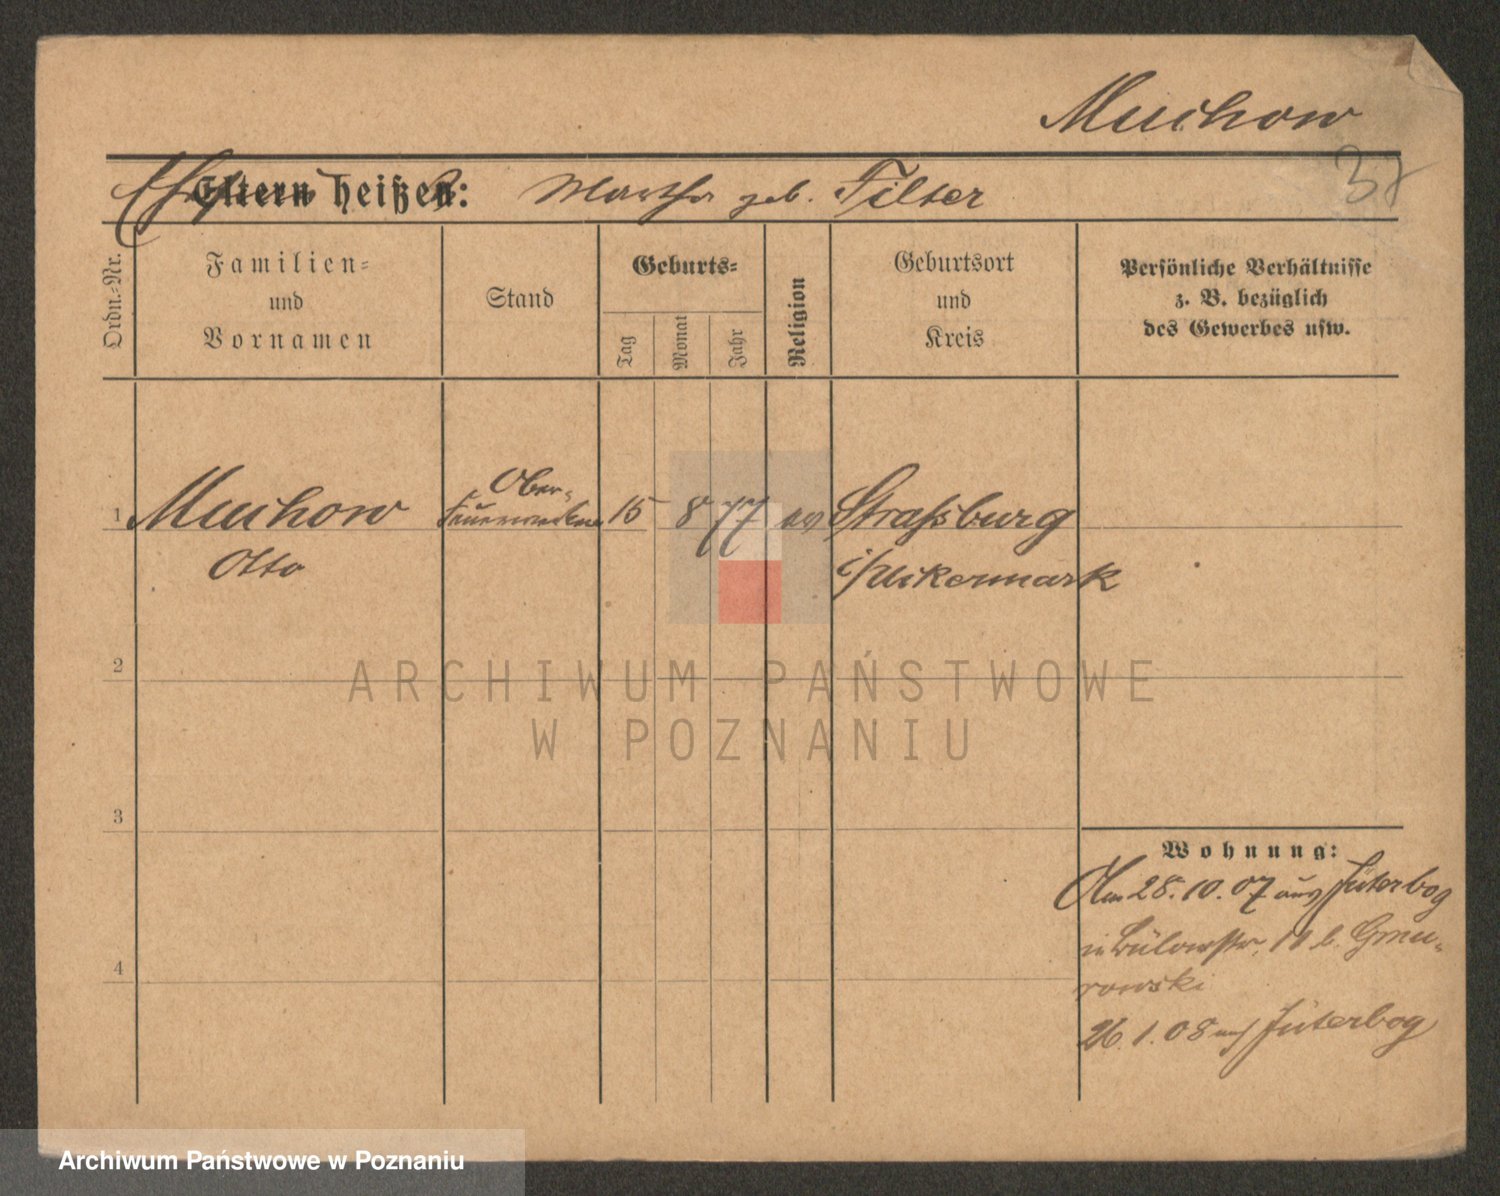 Muchow
37
Eltern heißen: Martha geb. Filter
Ordn.-Nr.
Familien-
und
Vornamen
Stand
Geburts-
Tag
Monat
Jahr
Religion
Geburtsort
und
Kreis
Persönliche Verhältnisse
z. B. bezüglich
des Gewerbes usw.
1 Muchow Ober- 15 8 77 ev Straßburg
Otto Feuerwerker i/Uckermark
2
ARCHIWUM PAŃSTWOWE
W POZNANIU
3
Wohnung:
Am 28. 10. 07 aus Jüterbog
in Bülowstr. 11 b. Gmu-
rowski
4
26. 1. 08 nach Jüterbog
Archiwum Państwowe w Poznaniu